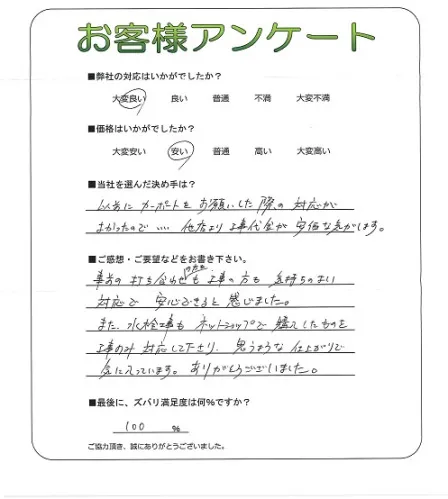 お客様アンケート
■弊社の対応はいかがでしたか？
大変良い 良い 普通 不満 大変不満
■価格はいかがでしたか？
大変安い 安い 普通 高い 大変高い
■当社を選んだ決め手は？
以前に カーポートを お願いした 際の 対応が
よかったので… 他店より 工事代金が 安価な気がします。
■ご感想・ご要望などをお書き下さい。
事前の 打ち合わせも 工事の方も 気持ちのよい
対応で 安心できると 感じました。
また、水栓工事も ネットショップで 購入したものを
工事のみ 対応して下さり、思うような 仕上がりで
気に入っています。ありがとうございました。
■最後に、ズバリ満足度は何％ですか？
100 ％
ご協力頂き、誠にありがとうございました。